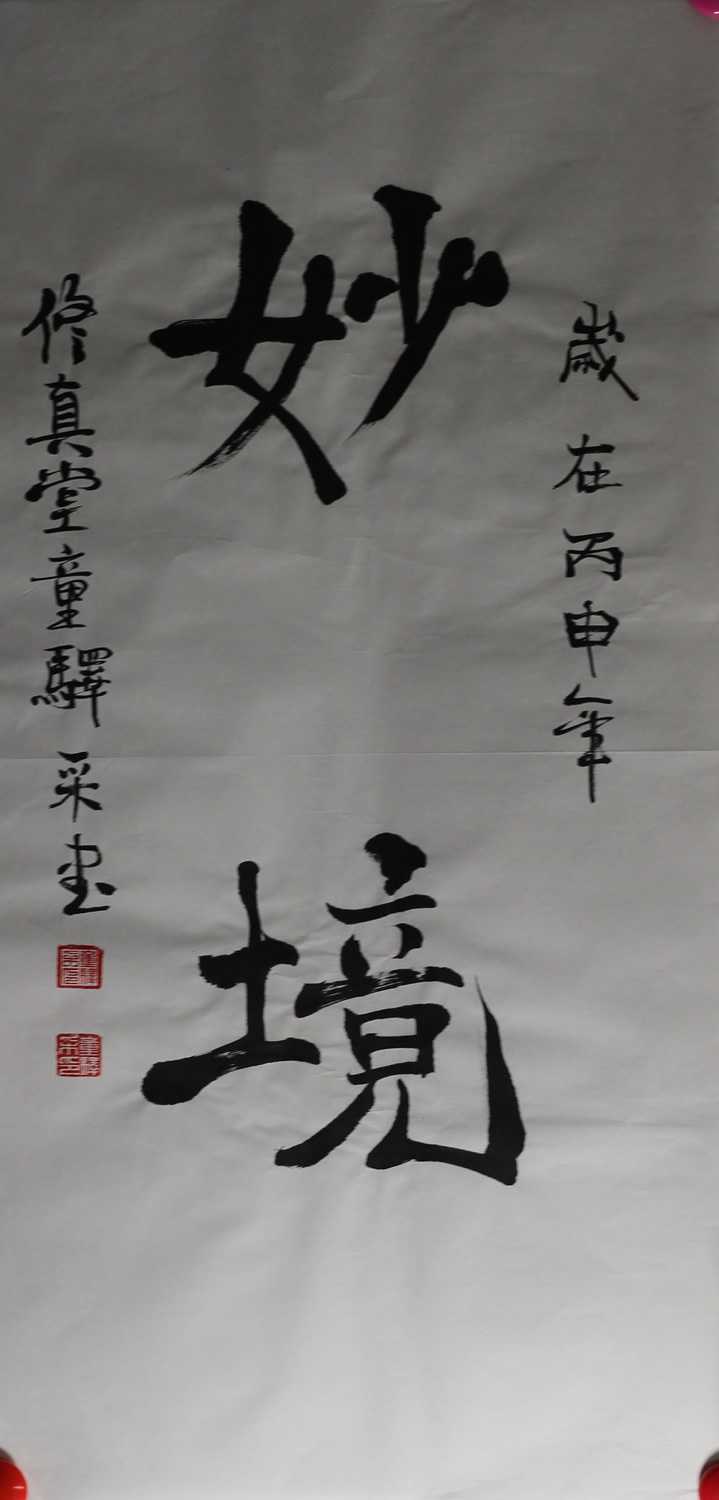 歲在丙申年
妙境
修真堂童驛采书